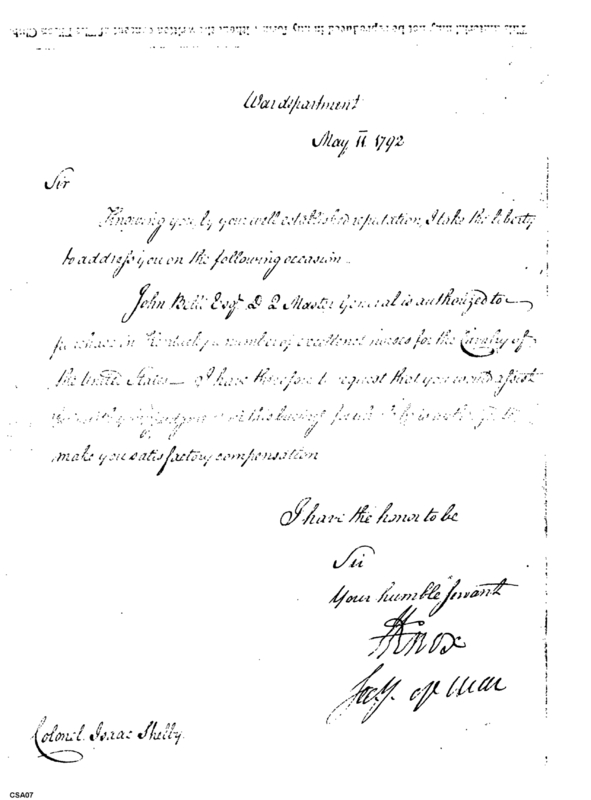 This material may not be reproduced in any form without the written consent of The Filson Club.
War department
May 11 1792
Sir
Knowing you, by your well established reputation, I take the liberty
to address you on the following occasion
John Belli Esqr D Q Master General is authorized to
purchase in Kentucky a number of excellent horses for the Cavalry of
the United States — I have therefore to request that you would assist
in this business for which he is authorized to
make you satisfactory compensation
I have the honor to be
Sir
Your humble Servant
HKnox
Secy. of War
Colonel. Isaac Shelby.
CSA07